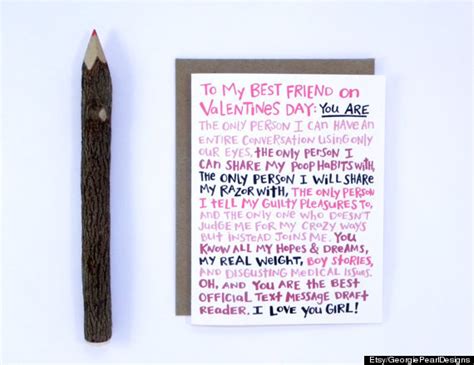 To My BEST FRIEND on
VALENTINES DAY: YOU ARE
THE ONLY PERSON I CAN HAVE AN
ENTIRE CONVERSATION USING ONLY
OUR EYES, THE ONLY PERSON I
CAN SHARE MY POOP HABITS WITH,
THE ONLY PERSON I WILL SHARE
MY RAZOR WITH, THE ONLY PERSON
I TELL MY GUILTY PLEASURES TO,
AND THE ONLY ONE WHO DOESN'T
JUDGE ME FOR MY CRAZY WAYS
BUT INSTEAD JOINS ME. YOU
KNOW ALL MY HOPES & DREAMS,
MY REAL WEIGHT, BOY STORIES,
AND DISGUSTING MEDICAL ISSUES.
OH, AND YOU ARE THE BEST
OFFICIAL TEXT MESSAGE DRAFT
READER. I LOVE YOU GIRL!
Etsy/GeorgiePearlDesigns